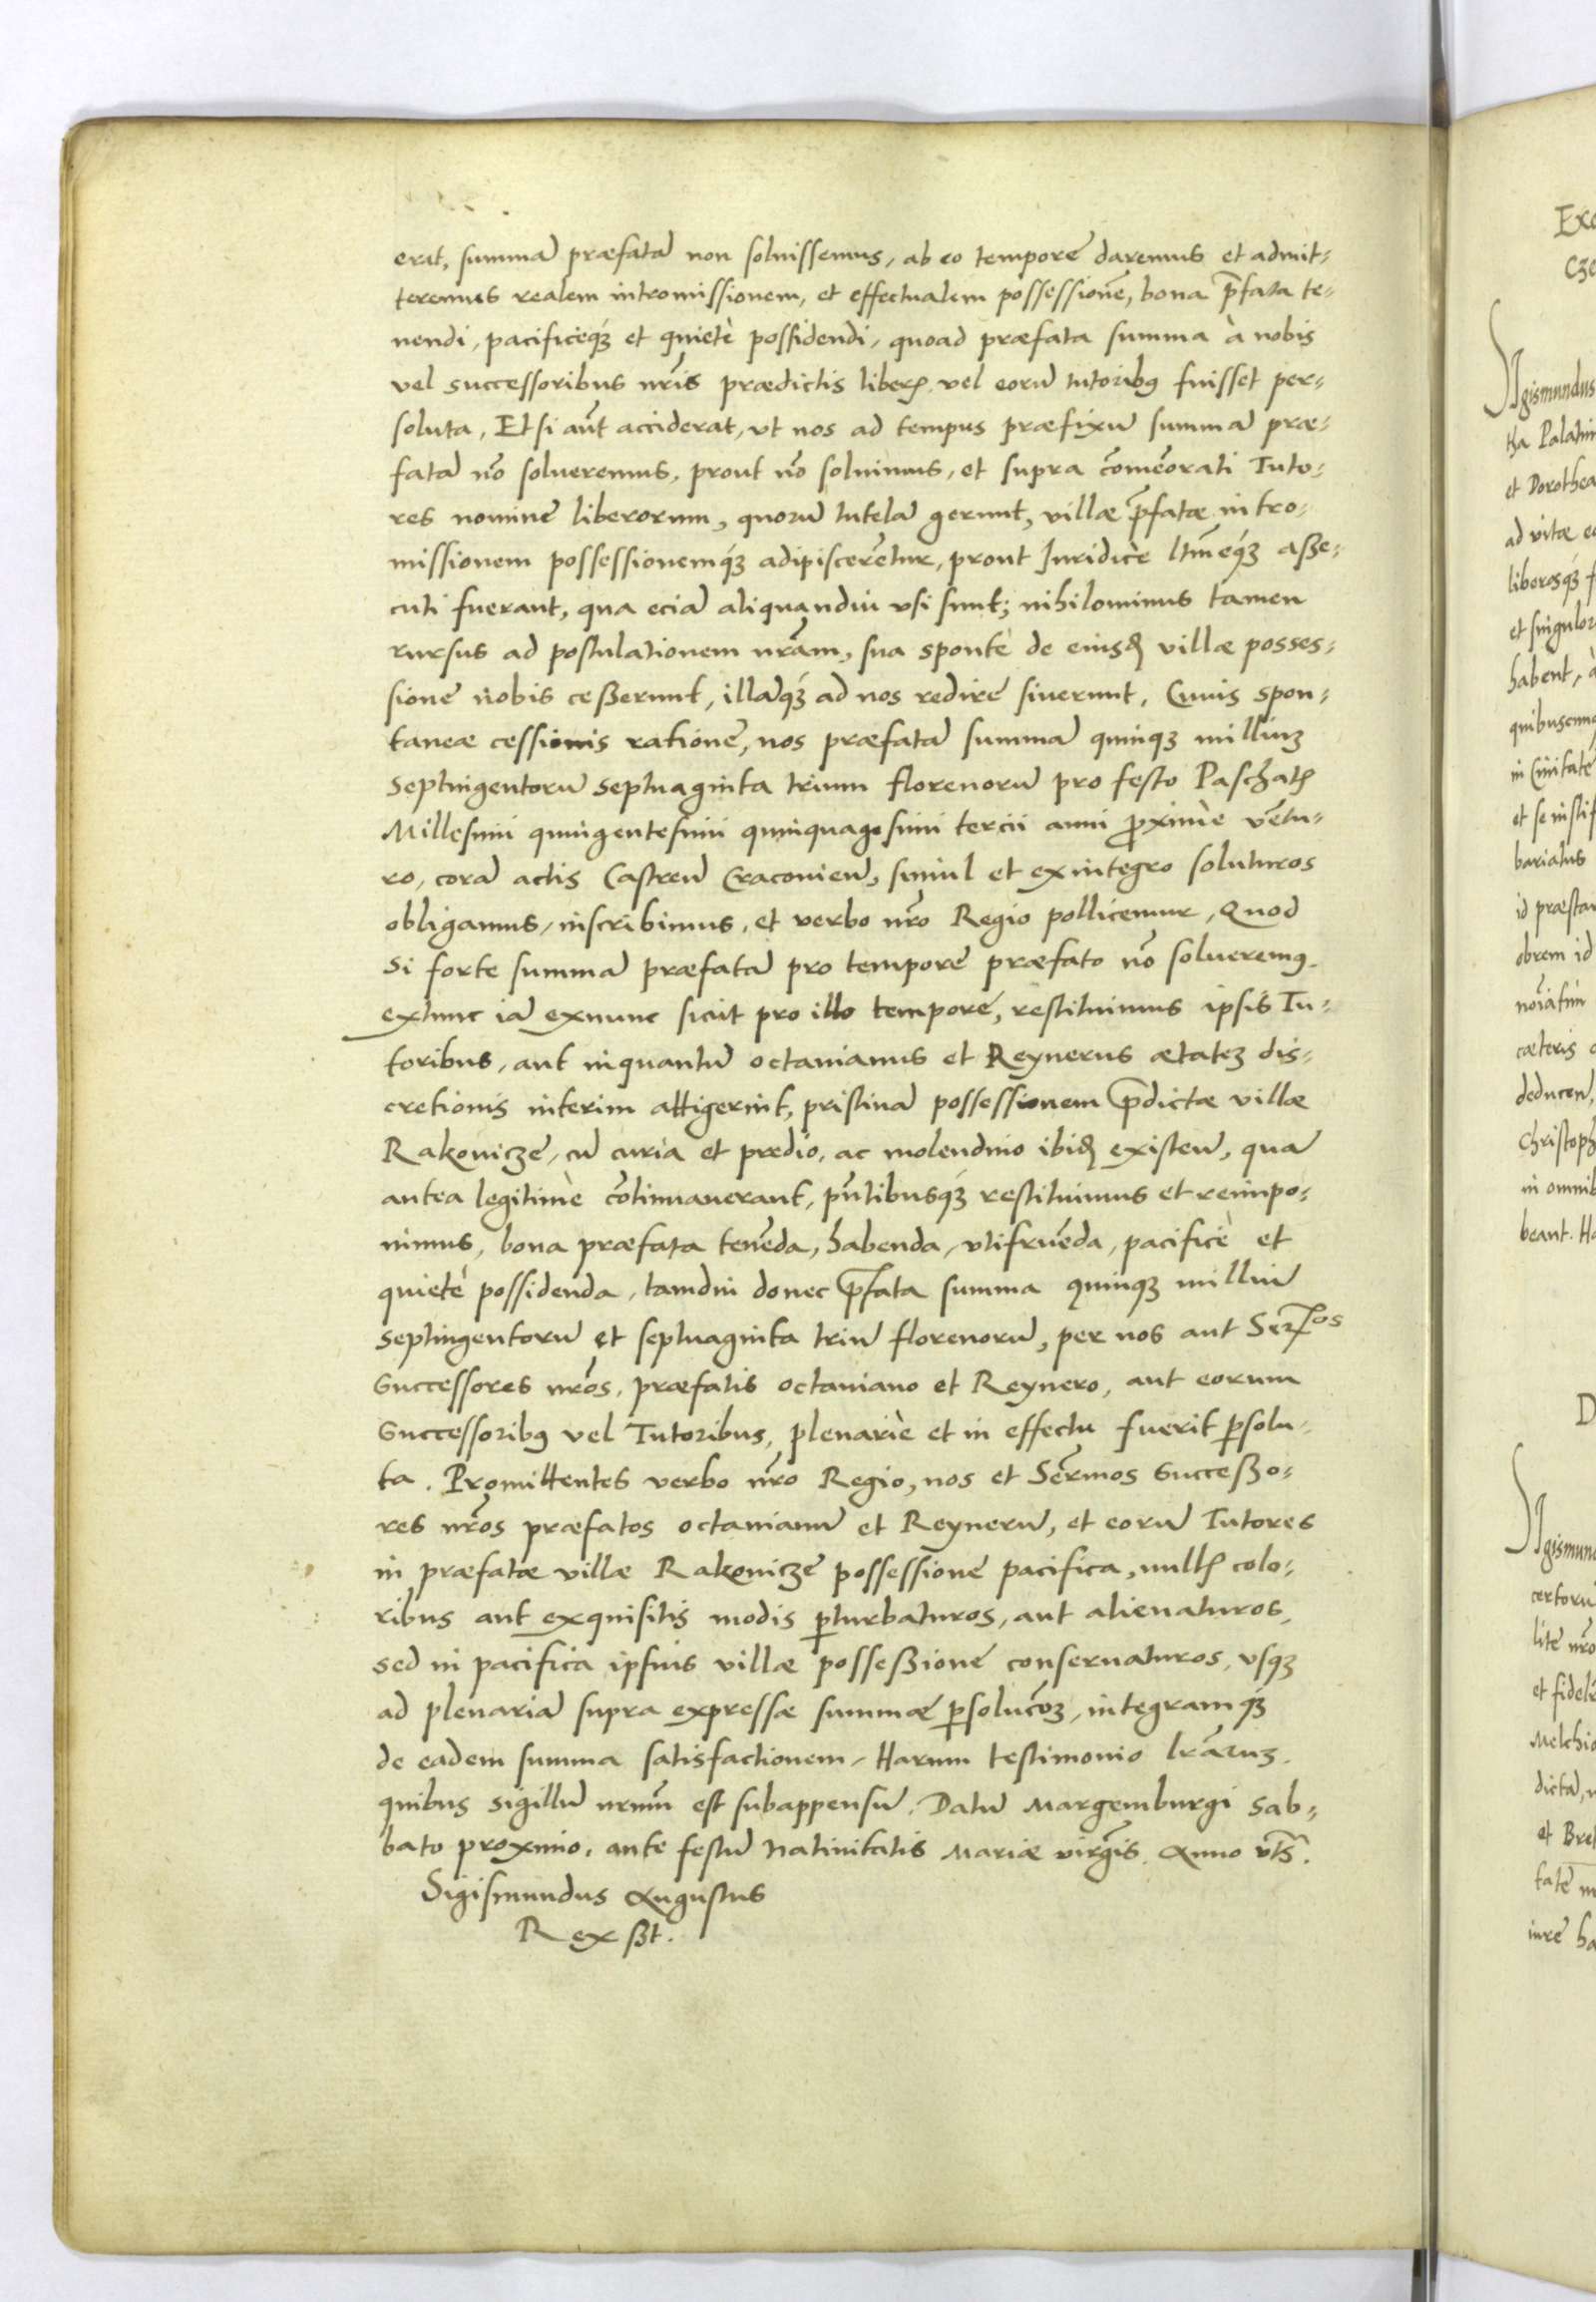 erat, summā præfatā non soluissemus, ab eo tempore daremus et admit-
teremus realem intromissionem, et effectualem possessionē, bona p̄fata te-
nendi, pacificeq́ꝫ et quietè possidendi, quoad præfata summa à nobis
vel successoribus nr̄is prædictis liberꝭ vel eorū tutoribꝰ fuisset per-
soluta, Et si aūt acciderat, vt nos ad tempus præfixū summā præ-
fatā nō solueremus, prout nō soluimus, et supra cōmeōrati Tuto-
res nomine liberorum, quorū tutelā gerunt, villæ p̄fatæ intro-
missionem possessionemq́ꝫ adipiscerētur, prout Juridicè ltm̄eq́ꝫ asse-
cuti fuerant, qua eciā aliquandiu vsi sunt; nihilominus tamen
rursus ad postulationem nrām, sua sponte de eiusdꝭ villæ posses-
sione nobis cesserunt, illāq́ꝫ ad nos redire siuerunt, Cuius spon-
taneæ cessionis ratione, nos præfatā summā quinqꝫ milliuꝫ
septuigentorū septuaginta trium florenorū pro festo Paschatꝭ
Millesimi quingentesimi quinquagesimi tercii anni p̄ximè vētu-
ro, corā actis Castreñ Cracovieñ, simul et ex integro soluturos
obligamus, inscribimus, et verbo nr̄o Regio pollicemur, Quod
si forte summā præfatā pro tempore præfato nō solueremꝰ.
extunc iā exnunc sicut pro illo tempore, restituimus ipsis Tu-
toribus, aut inquantū octauianus et Reynerus ætateꝫ dis-
cretionis interim attigerint, pristinā possessionem p̄dictæ villæ
Rakowicze, cū curia et prædio, ac molendino ibidꝭ existeñ, quā
antea legitimè cōtinuauerant, pn̄tibusq́ꝫ restituimus et reimpo-
nimus, bona præfata tenēda, habenda, vtifruēda, pacificè et
quietè possidenda, tamdiu donec p̄fata summa quinqꝫ milliū
septingentorū et septuaginta triū florenorū, per nos aut Ser̄os
Successores nr̄os, præfatis octauiano et Reynero, aut eorum
Successoribꝰ vel Tutoribus, plenariè et in effectu fuerit ꝑsolu-
ta. Promittentes verbo nr̄o Regio, nos et Serm̄os Successo-
res nr̄os præfatos octauianū et Reynerū, et eorū Tutores
in præfatæ villæ Rakowicze possessione pacifica, nullꝭ colo-
ribus aut exquisitis modis ꝑturbaturos, aut alienaturos,
sed in pacifica ipsius villæ possessione conseruaturos, vsqꝫ
ad plenariā supra expressæ summæ ꝑsolucōꝫ, integramqꝫ
de eadem summa satisfactionem, Harum testimonio lrāruꝫ.
quibus sigillū nrum̄ est subappensū. Datū Margemburgi sab-
bato proximo, ante festū Natiuitatis Mariæ virḡis. Anno vts̄.
Sigismundus Augustus
Rex sst.
Exe
Cze
Sigismundus
tha Palatin
et Dorothea
ad vitæ eo
liberosq́ꝫ f
et singulor
habent, à
quibuscunq
in Ciuitate
et se instif
bariatus
id præstan
obrem id
noīatim
cæteris
deducen,
Christoph
in omnib
beant. Ha
D
Sigismund
certoru
lite nr̄o
et fidele
Melchio
dictā, n
et Bret
tate m
iure ha